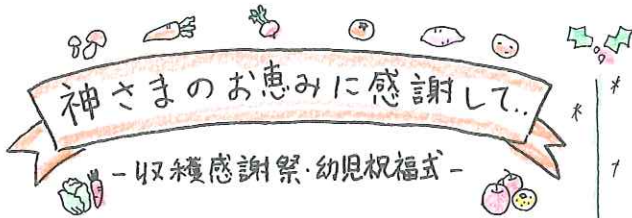 神さまのお恵みに感謝して..
-収穫感謝祭・幼児祝福式-